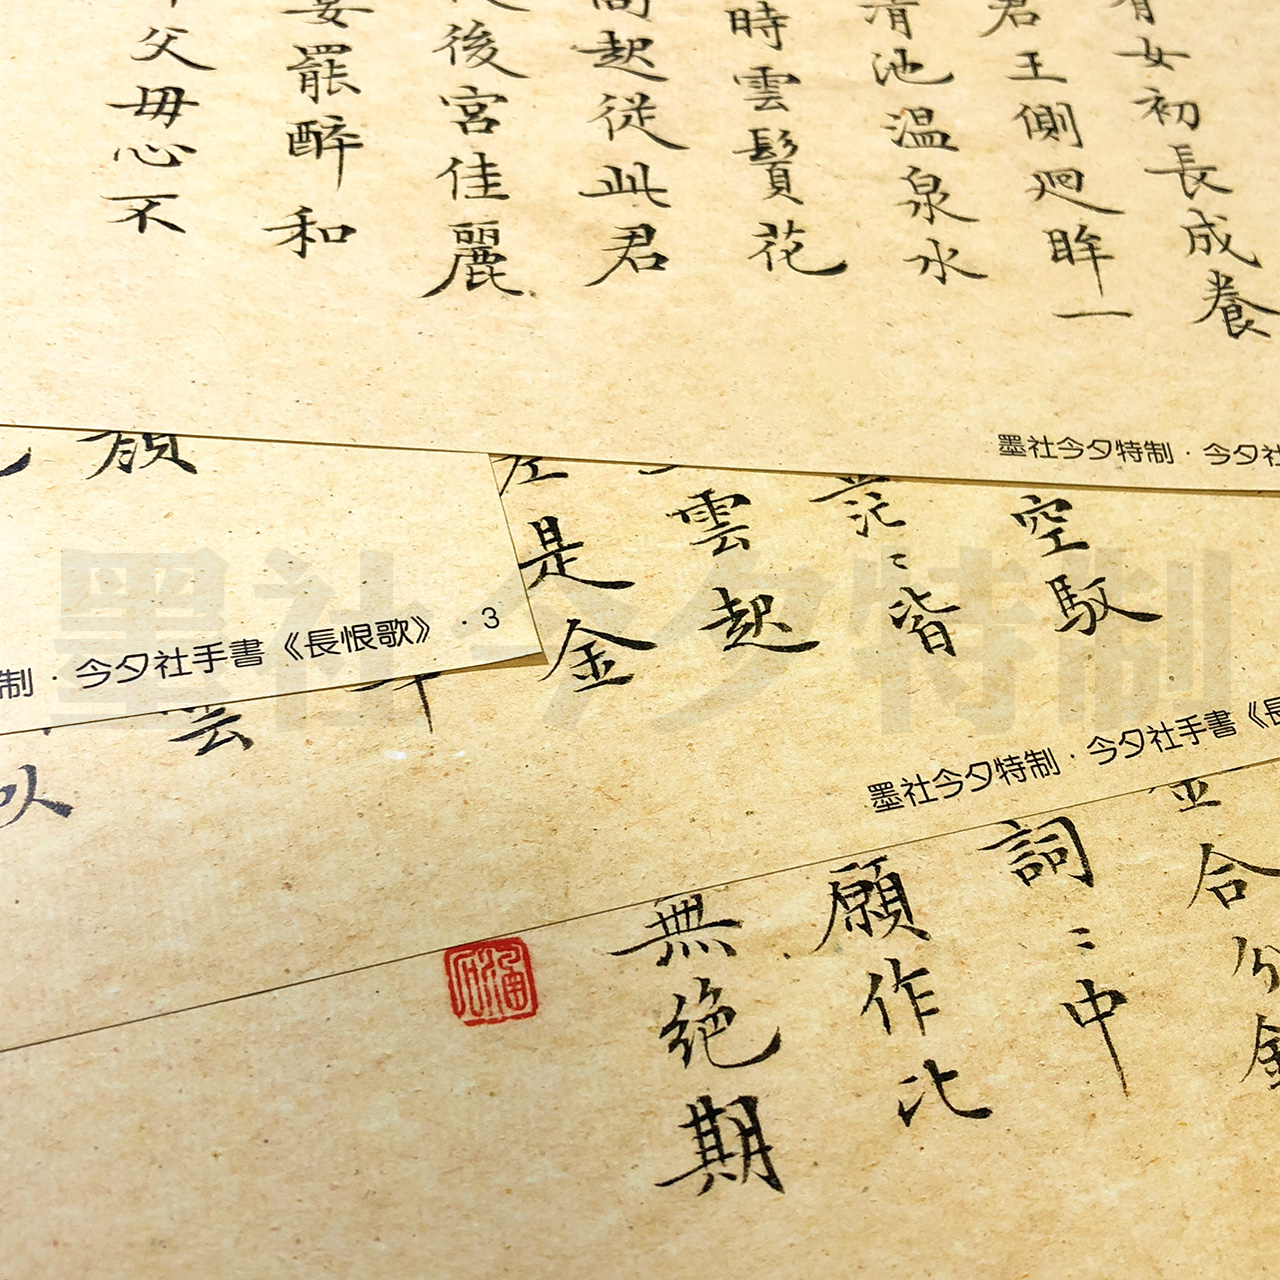 女初長成養
君王側迴眸一
清池温泉水
時雲鬢花
起從此君
後宮佳麗
宴罷醉和
父母心不
墨社今夕特制 · 今夕社
顏
制 · 今夕社手書《長恨歌》 · 3
空馭
茫〻皆
雲起
是金
墨社今夕特制 · 今夕社手書《長
雲
以
合分
詞〻中
願作比
無絕期
墨社今夕特制